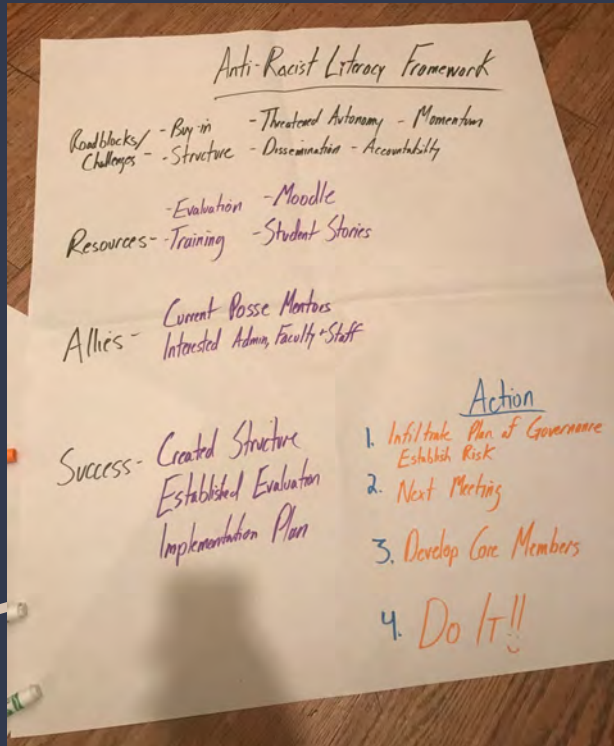 Anti-Racist Literacy Framework
Roadblocks/ - Buy-in - Threatened Autonomy - Momentum
Challenges - - Structure - Dissemination - Accountability
- Evaluation - Moodle
Resources - - Training - Student Stories
Allies - Current Posse Mentors
Interested Admin, Faculty + Staff
Success - Created Structure
Established Evaluation
Implementation Plan
Action
1. Infiltrate Plan of Governance
Establish Risk
2. Next Meeting
3. Develop Core Members
4. Do It!!